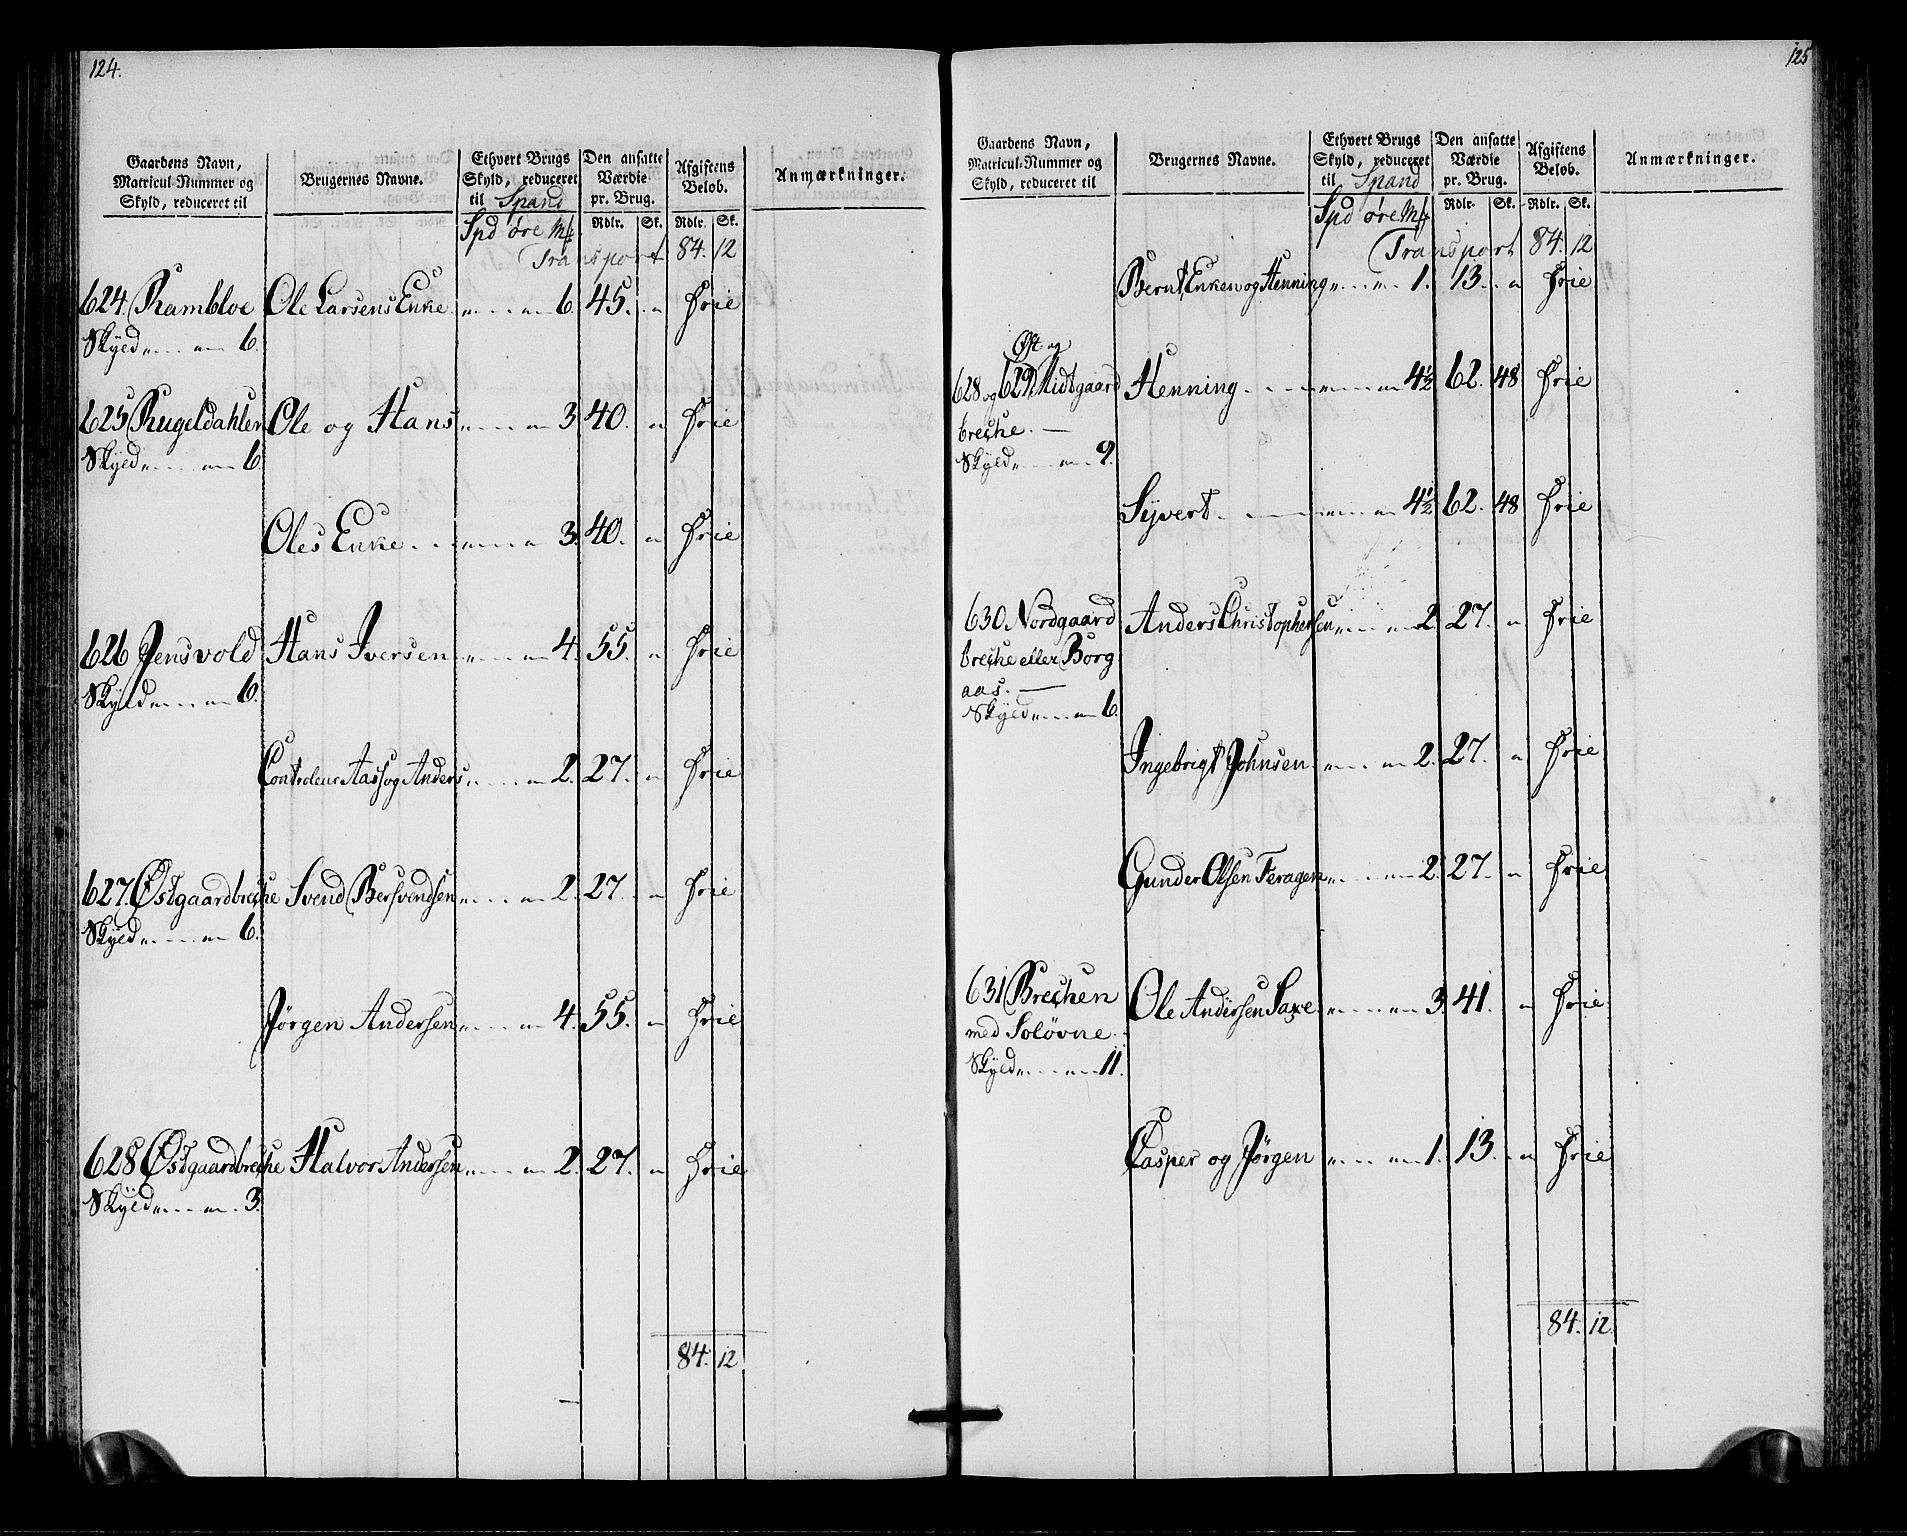 124.
Gaardens Navn, Matricul-Nummer og Skyld, reduceret til
Brugernes Navne.
Ethvert Brugs Skyld, reduceret til Spand
Den ansatte Værdie pr. Brug.
Afgiftens Beløb.
Anmærkninger.
Spd øre Mk Rdlr. Sk. Rdlr. Sk.
Transport 84. 12
624. Rambloe Ole Larsens Enke „ „ 6. 45. „ Frie
Skyld „ „ 6.
625 Kugeldahlen Ole og Hans „ „ 3. 40. „ Frie
Skyld „ „ 6
Oles Enke „ „ 3. 40. „ Frie
626 Jensvold Hans Iversen „ „ 4. 55. „ Frie
Skyld „ „ 6.
Controleur Aas og Anders „ „ 2. 27. „ Frie
627. Østgaardbreche Svend Bersvendsen „ „ 2. 27. „ Frie
Skyld „ „ 6.
Jørgen Andersen „ „ 4. 55. „ Frie
628 Østgaardbreche Halvor Andersen „ „ 2. 27. „ Frie
Skyld „ „ 3.
84. 12
125
Gaardens Navn, Matricul-Nummer og Skyld, reduceret til
Brugernes Navne.
Ethvert Brugs Skyld, reduceret til Spand
Den ansatte Værdie pr. Brug.
Afgiftens Beløb.
Anmærkninger.
Spd øre Mk Rdlr. Sk. Rdlr. Sk.
Transport 84. 12
Bernt, Enken og Henning „ „ 1. 13. „ Frie
Øst og
628 og 629 Midtgaard Henning „ „ 4½ 62. 48 Frie
breche.
Skyld „ „ 9.
Syvert „ „ 4½ 62. 48 Frie
630 Nordgaard Anders Christophersen „ „ 2. 27. „ Frie
breche eller Borg
aas.
Skyld „ „ 6.
Ingebrigt Johnsen „ „ 2. 27. „ Frie
Gunder Olsen Feragen „ „ 2. 27. „ Frie
631 Brechen Ole Andersen Saxe „ „ 3. 41. „ Frie
med Soløvne.
Skyld „ „ 11.
Casper og Jørgen „ „ 1. 13. „ Frie
84. 12